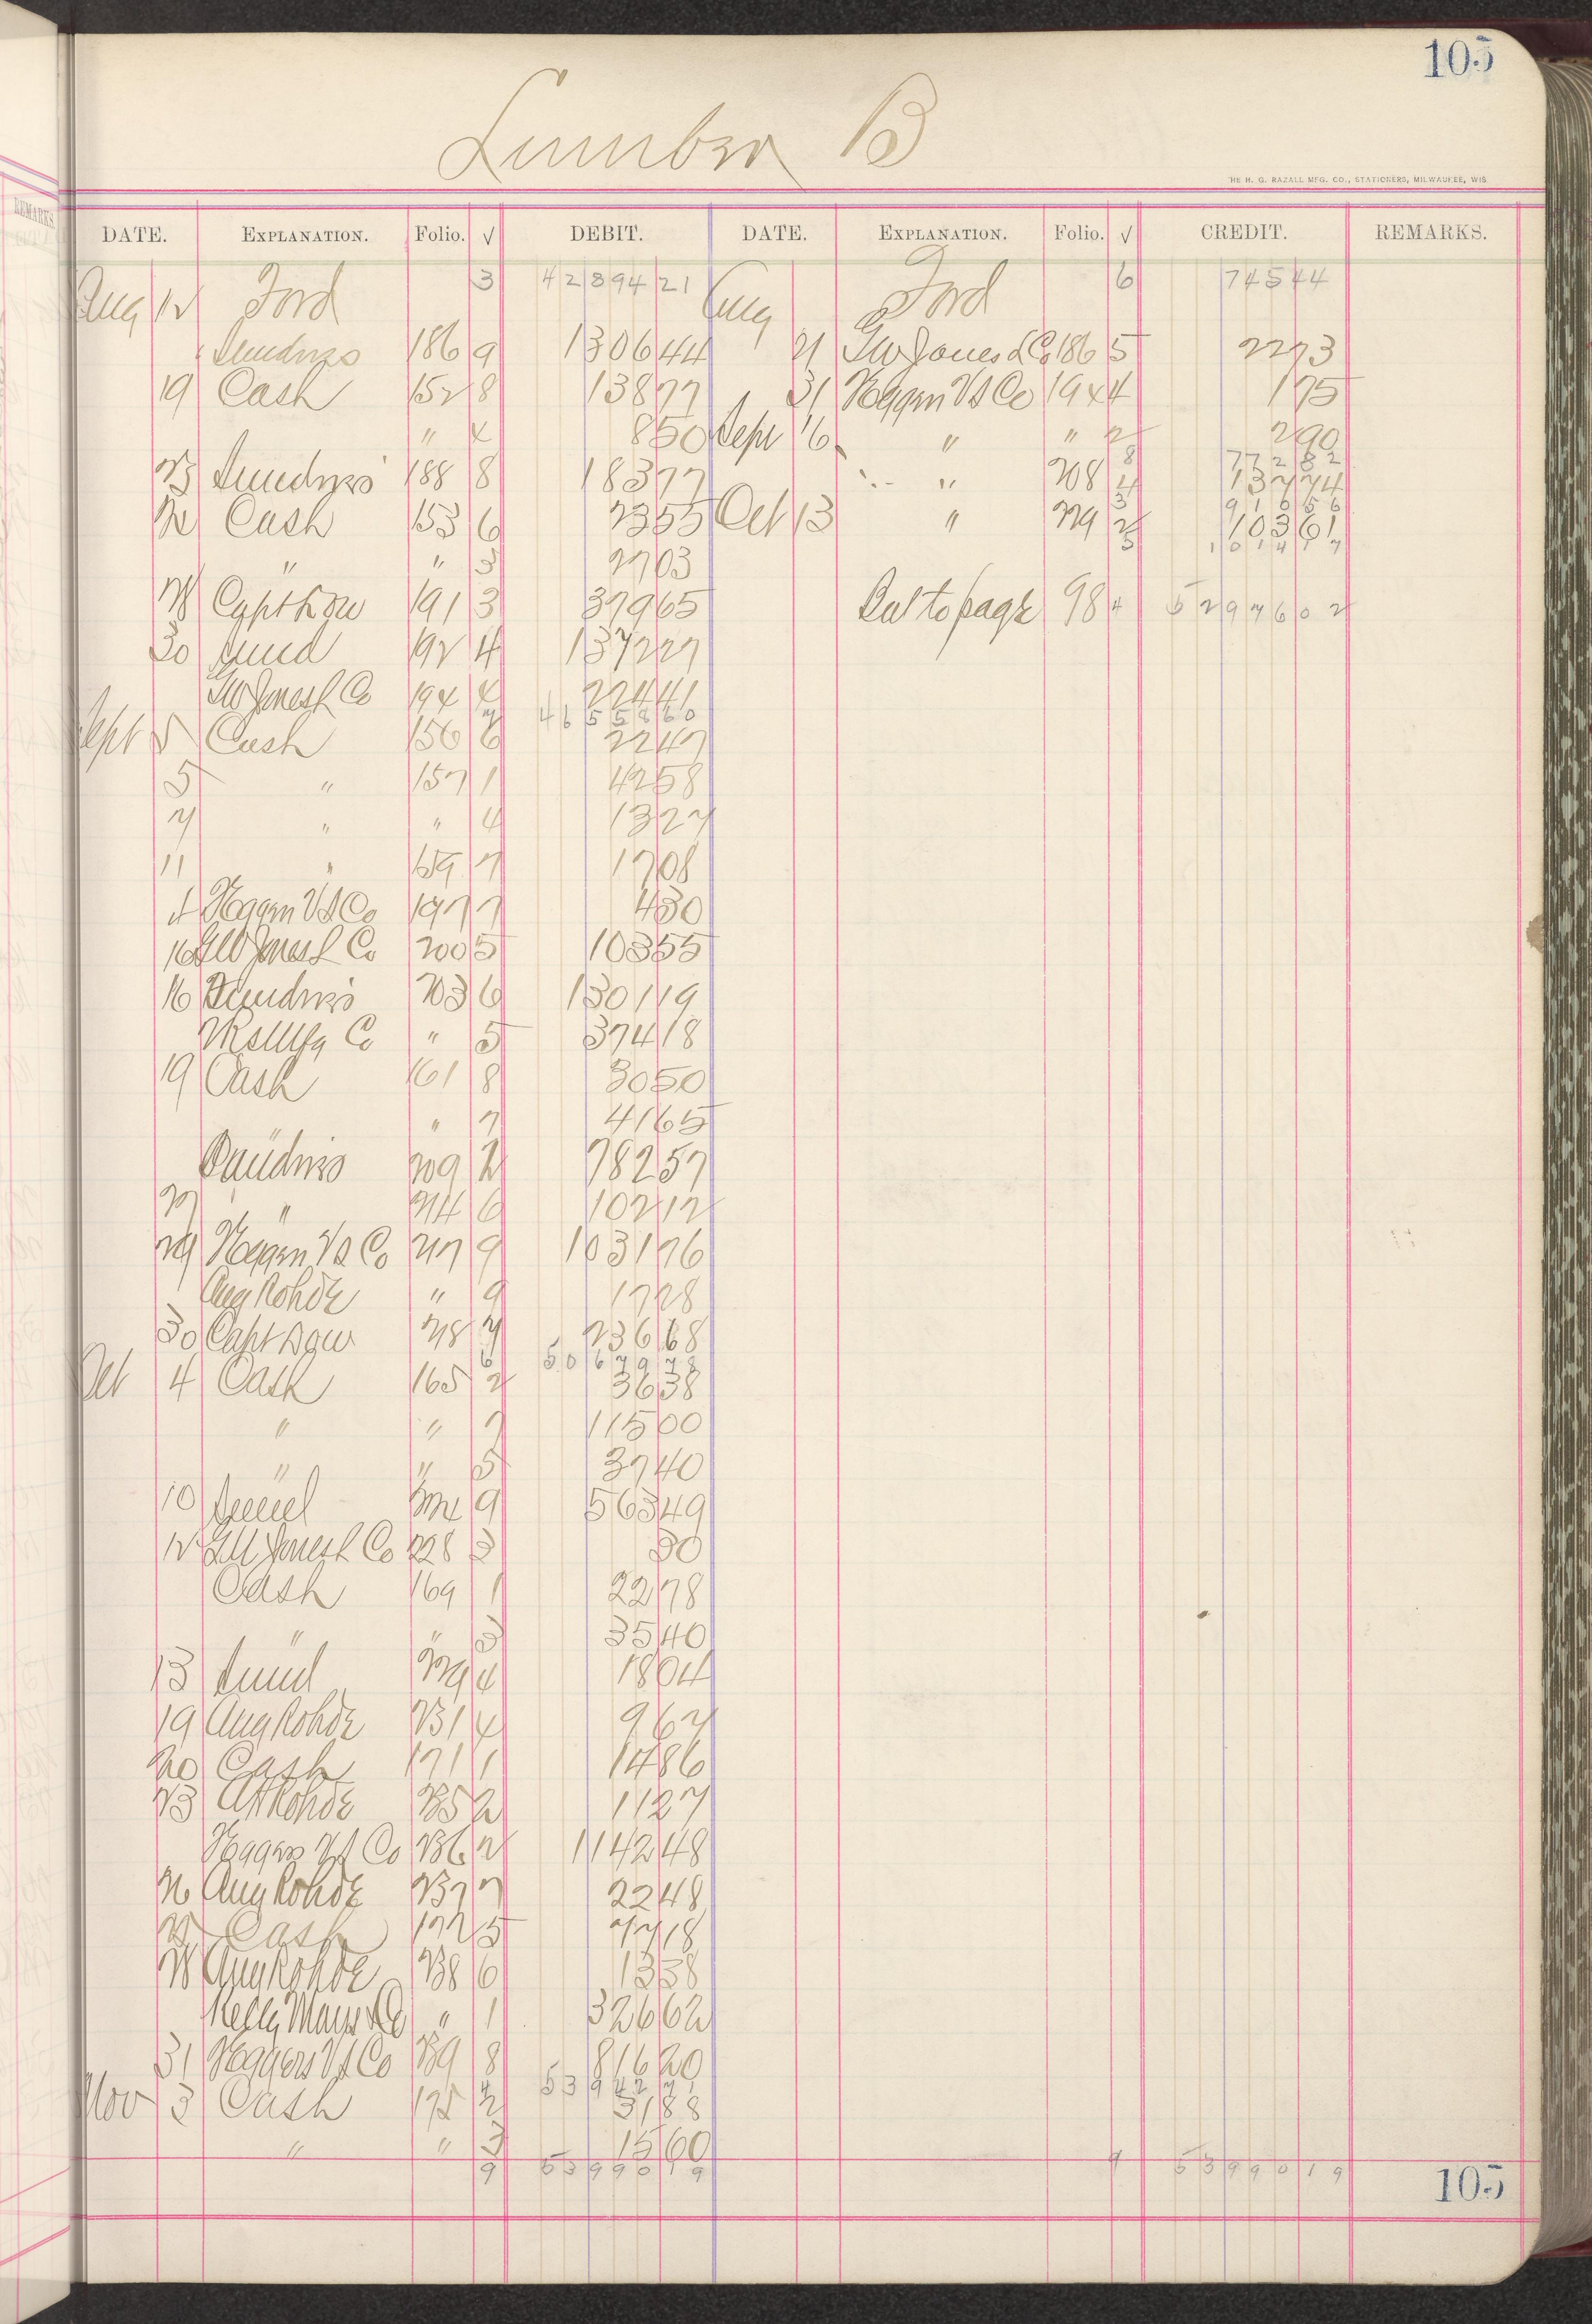 105
Lumber B
THE H. G. RAZALL MFG. CO., STATIONERS, MILWAUKEE, WIS.
DATE. EXPLANATION. Folio. √ DEBIT. DATE. EXPLANATION. Folio. √ CREDIT. REMARKS.
Aug 12 Ford 3 42894 21 Aug Ford 6 745 44
Sundries 186 9 1306 44 21 GW Jones L Co 186 5 22 73
19 Cash 152 8 138 77 31 Heggen VS Co 194 4 1 75
" 4 8 50 Sept 16 " " 2 2 90
8 772 82
23 Sundries 188 8 183 77 " 208 4 137 74
3 910 56
22 Cash 153 6 23 55 Oct 13 " 229 2 103 61
5 1014 17
" " 3 27 03
28 Capt Dow 191 3 379 65 Bal to page 98 4 52976 02
30 Sund 192 4 1372 27
GW Jones L Co 194 4 224 41
7 46558 60
Sept 5 Cash 156 6 22 47
5 " 157 1 42 58
7 " " 4 13 27
11 " 159 7 17 08
Heggen VS Co 197 7 4 30
16 GW Jones L Co 200 5 103 55
16 Sundries 203 6 1301 19
Mfg Co " 5 374 18
19 Cash 161 8 30 50
" " 7 41 65
Sundries 209 2 782 57
27 " 214 6 102 12
29 Heggen VS Co 217 9 1031 76
Aug Rohde " 9 17 28
30 Capt Dow 218 7 236 68
6 50679 78
Oct 4 Cash 165 2 36 38
" " 7 115 00
" " 5 37 40
10 Sund 224 9 563 49
12 GW Jones L Co 228 3 30
Cash 169 1 22 78
" " 3 35 40
13 Sund 229 4 18 04
19 Aug Rohde 231 4 9 67
20 Cash 171 1 14 86
23 A Rohde 235 2 11 27
Heggen VS Co 236 2 1142 48
26 Aug Rohde 237 7 22 48
Cash 172 5 77 18
28 Aug Rohde 238 6 13 38
Kelly Maus & Co " 1 326 62
31 Heggers VS Co 239 8 816 20
4 53942 71
Nov 3 Cash 175 2 31 88
" " 3 15 60
9 53990 19 9 53990 19
105